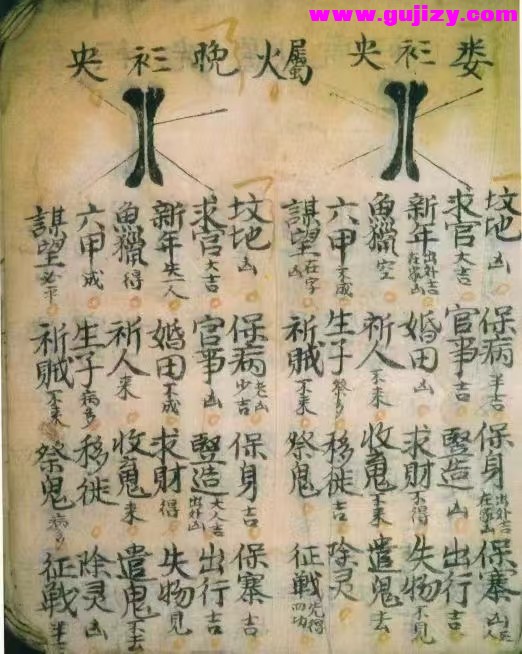 www.gujizy.com
娄衫央 屬火 晚衫央
坟地凶 保病半吉 保身出外吉在家凶 保寨凶
求官大吉 官事吉 竪造凶 出行吉
新年出外吉在家凶 婚田凶 求財不得 失物不見
魚獵空 祈人不来 收鬼不来 遣鬼去
六甲不成 生子 移徙吉 除灵吉
謀望凶 祈賊不来 祭鬼 征戦先得
坟地凶 保病老凶少吉 保身吉 保寨吉
求官大吉 官事凶 竪造大人吉出外凶 出行吉
新年失一人 婚田不成 求財得 失物見
魚獵得 祈人来 收鬼来 遣鬼不去
六甲成 生子病多 移徙 除灵凶
謀望必平 祈賊不来 祭鬼 征戦